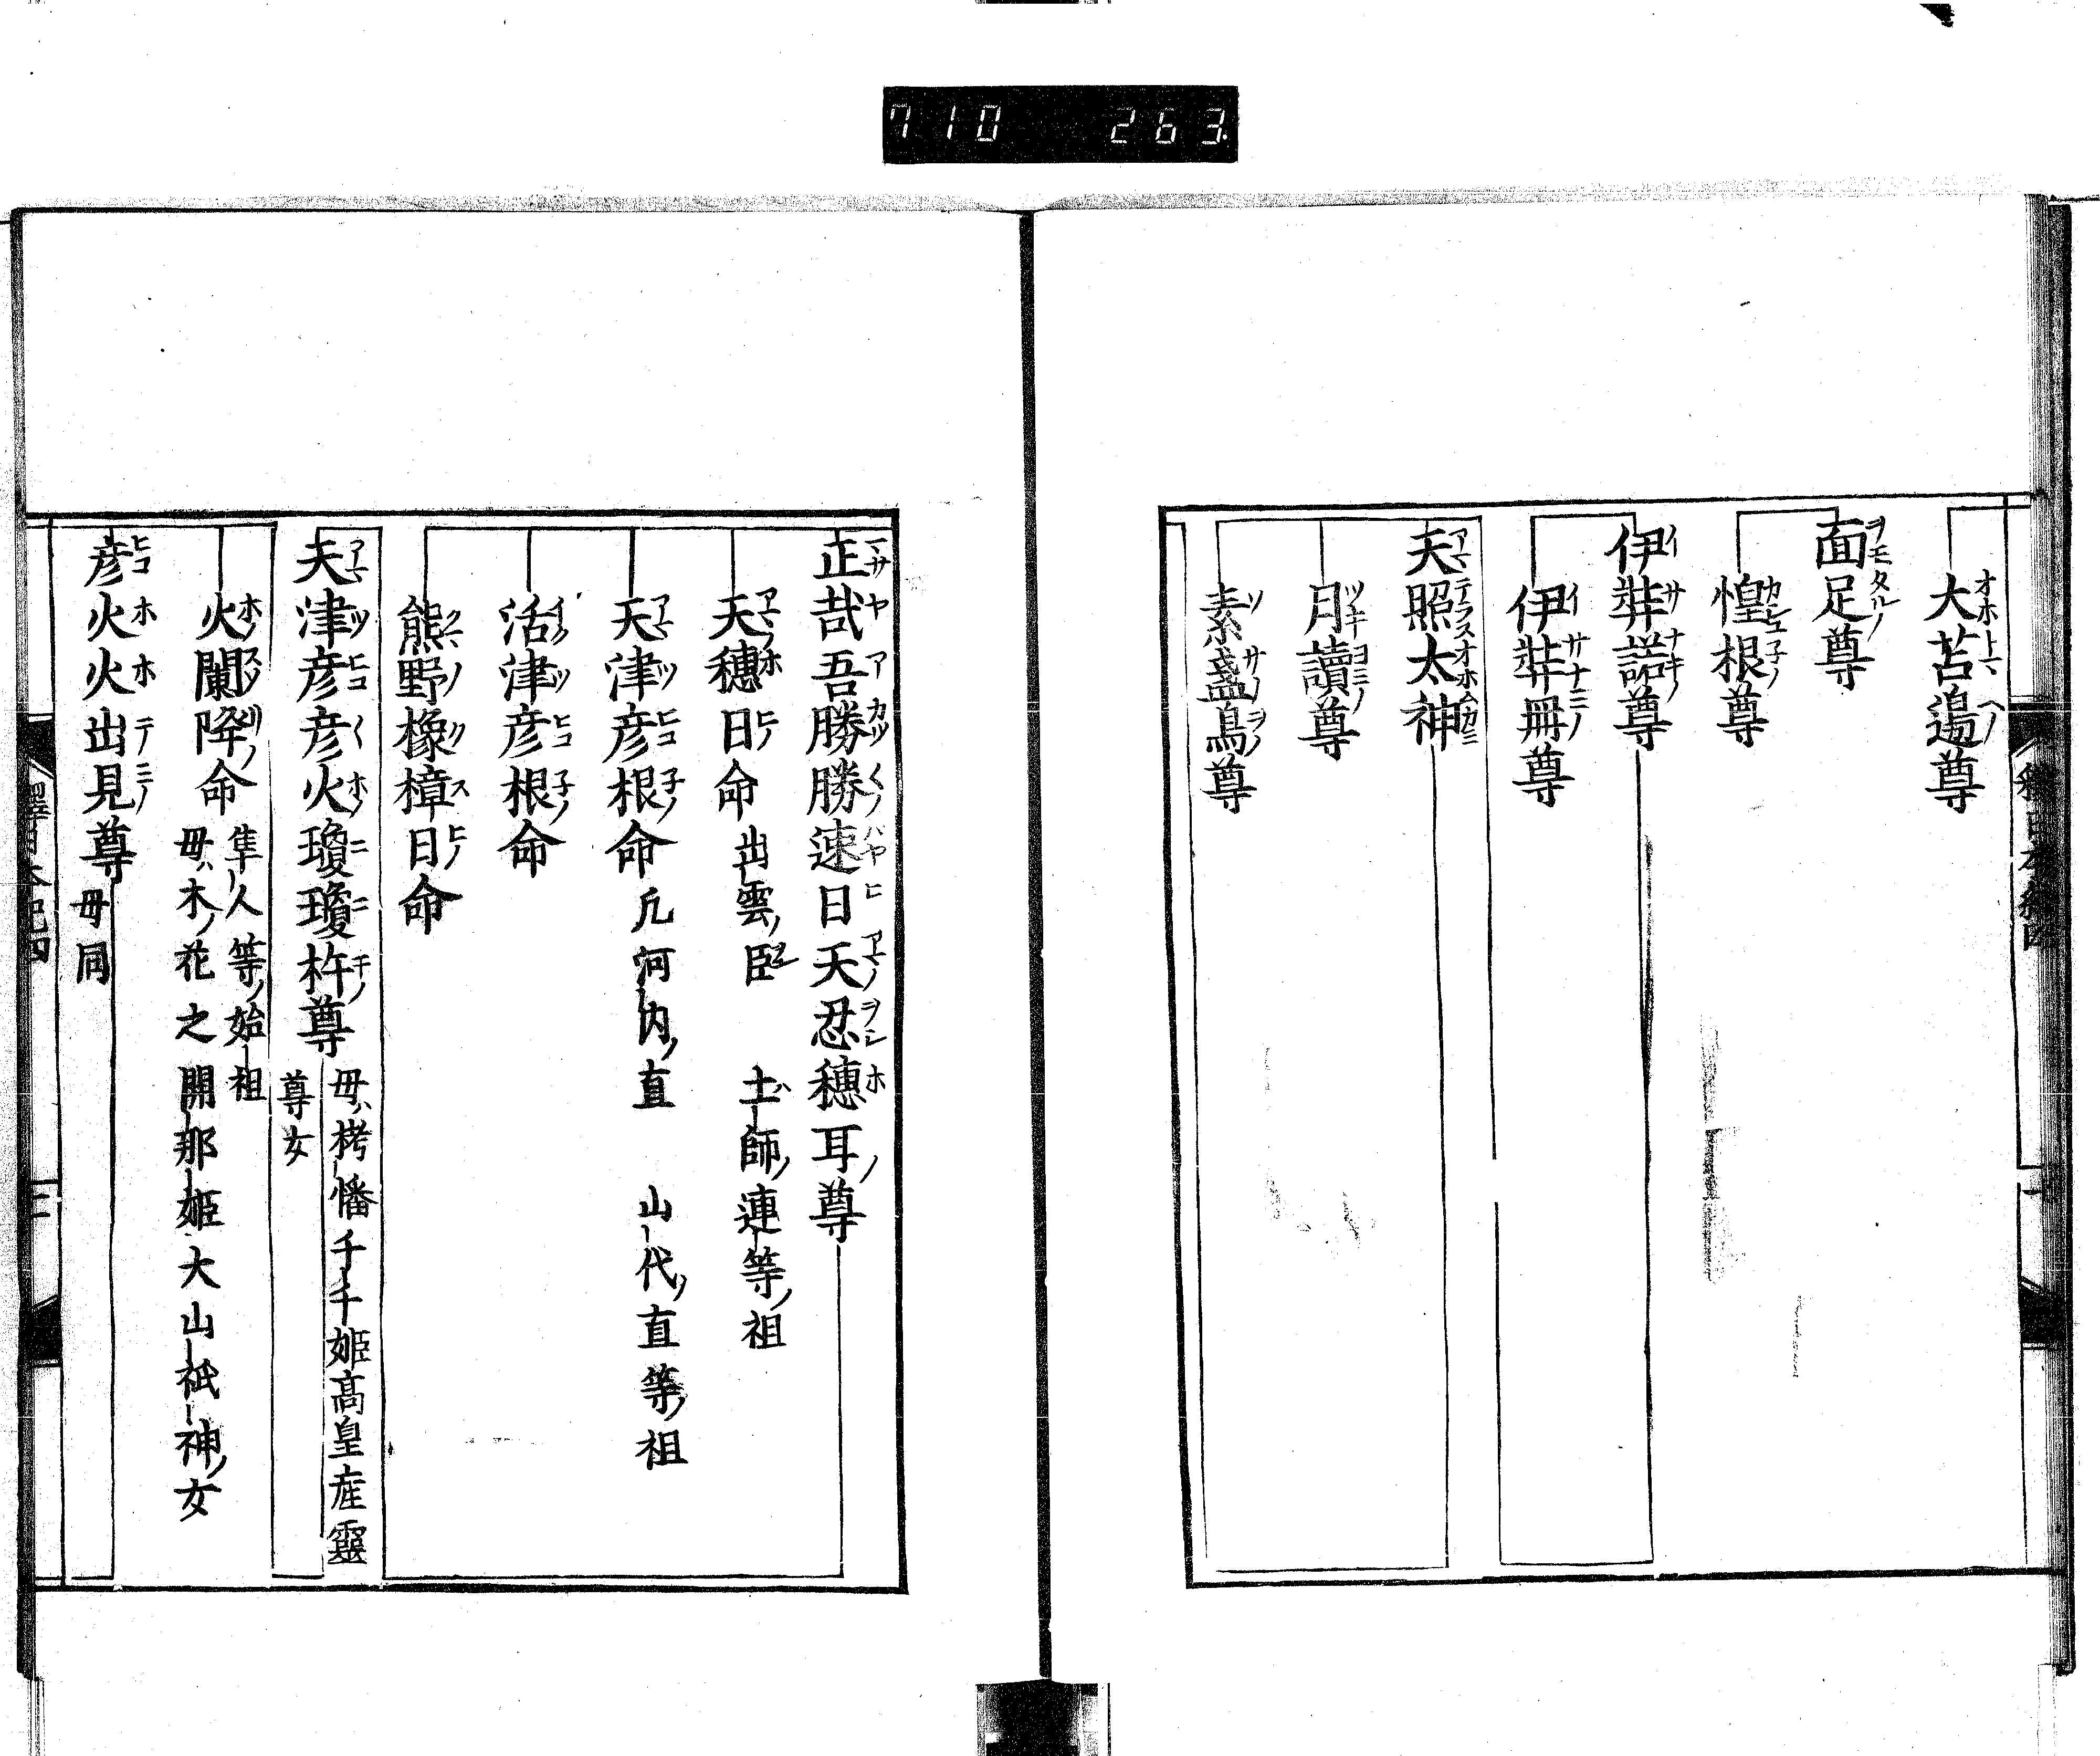 710 263
大苫邉尊
面足尊
惶根尊
伊弉諾尊
伊弉冊尊
天照太神
月讀尊
素盞烏尊
正哉吾勝勝速日天忍穗耳尊
天穗日命 出雲臣 土師連等祖
天津彦根命 凡河内直 山代直等祖
活津彦根命
熊野橡樟日命
天津彦彦火瓊瓊杵尊 母栲幡千千姫高皇産靈
尊女
火闌降命 隼人等始祖
母木花之開那姫大山祇神女
彦火火出見尊 母同
釋日本紀四 二